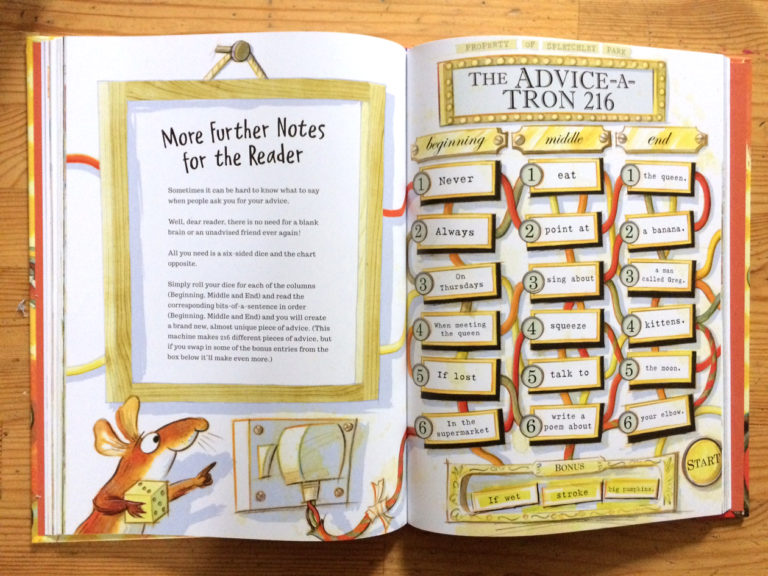 More Further Notes
for the Reader
Sometimes it can be hard to know what to say
when people ask you for your advice.
Well, dear reader, there is no need for a blank
brain or an unadvised friend ever again!
All you need is a six-sided dice and the chart
opposite.
Simply roll your dice for each of the columns
(Beginning, Middle and End) and read the
corresponding bits-of-a-sentence in order
(Beginning, Middle and End) and you will create
a brand new, almost unique piece of advice. (This
machine makes 216 different pieces of advice, but
if you swap in some of the bonus entries from the
box below it'll make even more.)
PROPERTY OF SPLETCHLEY PARK
THE ADVICE-A-
TRON 216
beginning
middle
end
1 Never
1 eat
1 the queen.
2 Always
2 point at
2 a banana.
3 On
Thursdays
3 sing about
3 a man
called Greg.
4 When meeting
the queen
4 squeeze
4 kittens.
5 If lost
5 talk to
5 the moon.
6 In the
supermarket
6 write a
poem about
6 your elbow.
BONUS
If wet
stroke
big pumpkins.
START